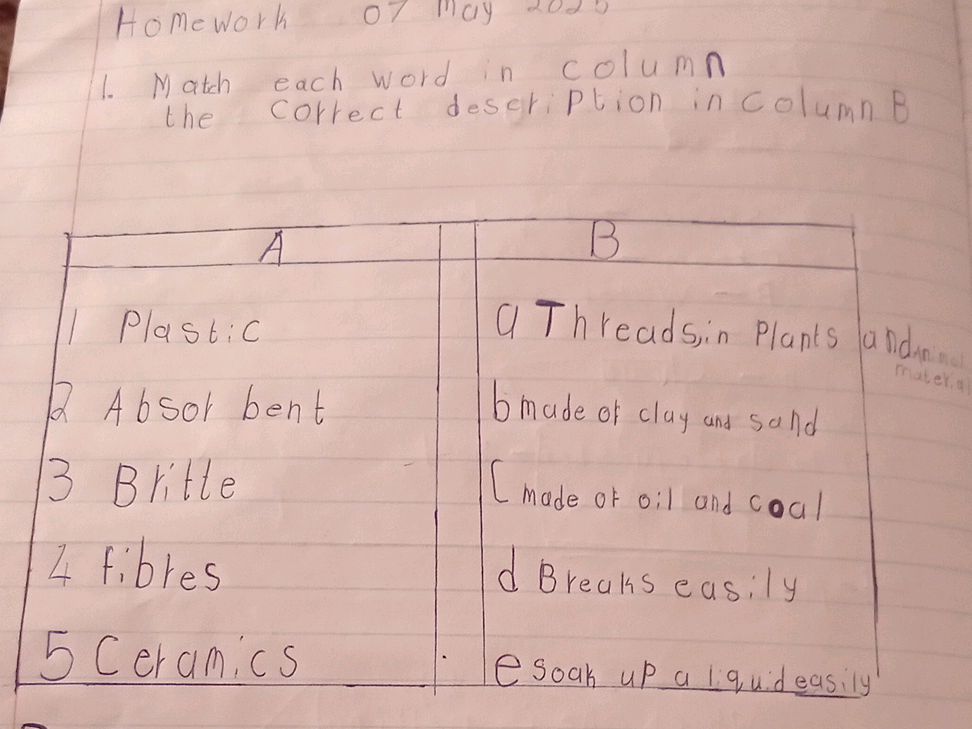 Homework 07 May 2025
1. Match each word in column
the correct description in column B
A B
1 Plastic a Threads, in Plants and Animal
material
2 Absorbent b made of clay and sand
3 Britle c made of oil and coal
4 fibres d Breaks easily
5 Ceramics e soak up a liquid easily